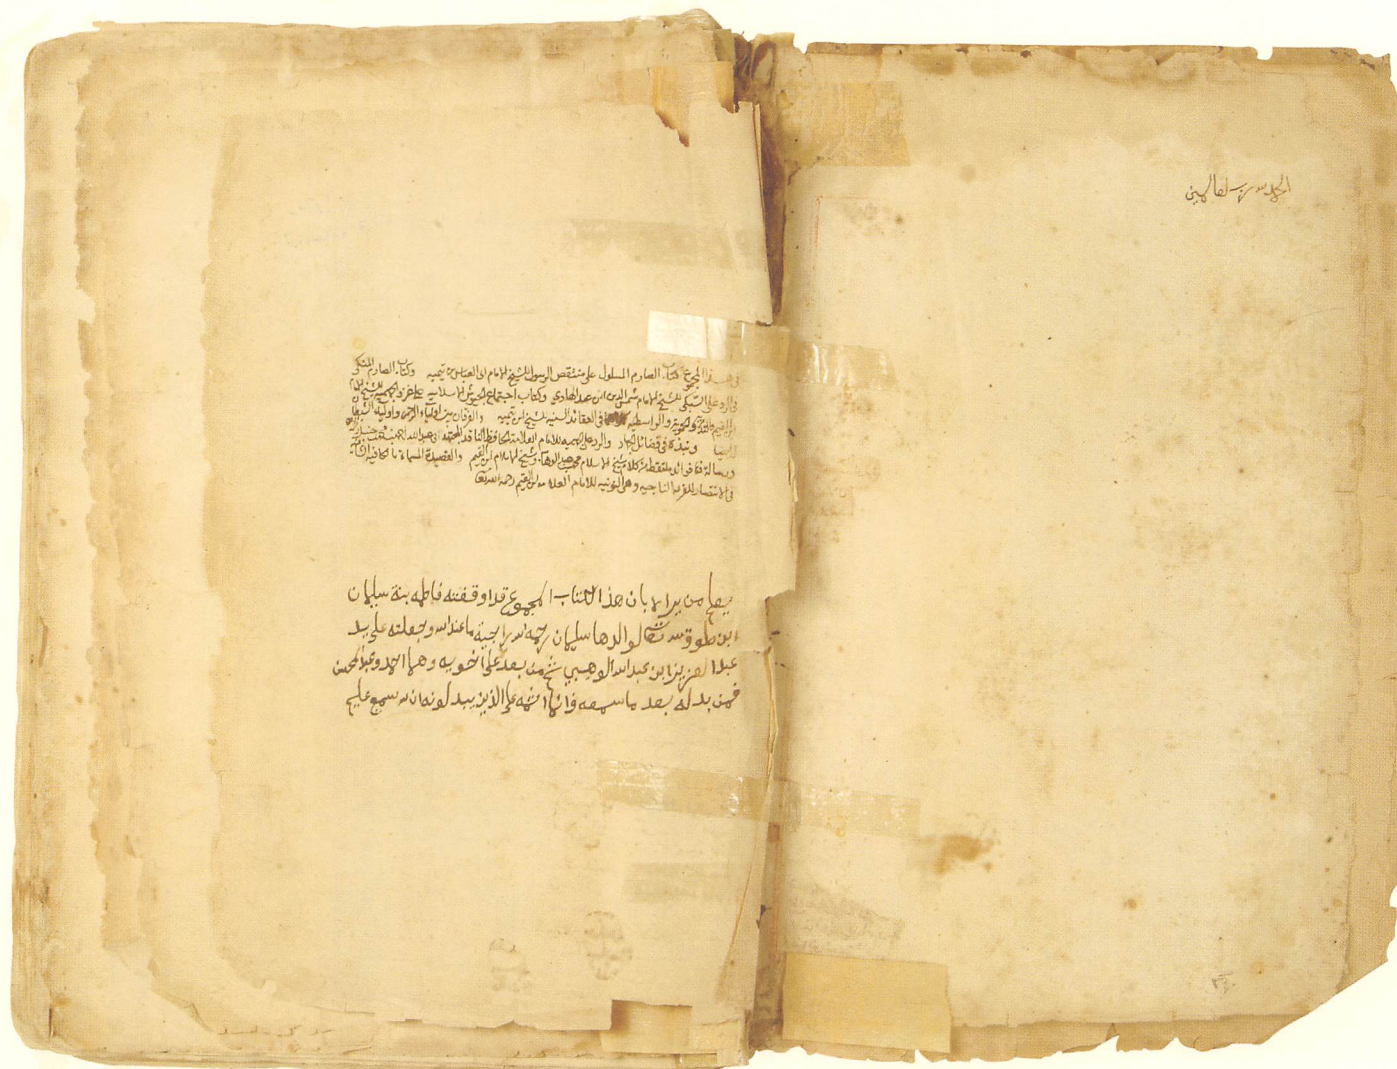 الحمد لله رب العالمين
في هذا المجموع كتاب الصارم المسلول على منتقص الرسول للشيخ الامام ابي العباس بن تيميه وكتاب الصارم المنكي
في الرد على السبكي للشيخ الامام شمس الدين ابن عبد الهادي وكتاب اجتماع الجيوش الاسلاميه على غزو الجهميه للشيخ
ابن القيم والحموية والواسطيه في العقائد السنيه للشيخ ابن تيميه والفرقان بين اولياء الرحمن واولياء الشيطان
ونبذة في فضائل والرد على الجهميه للامام العلامة الحافظ الناقد ابي عبد الله احمد بن
ورسالة فيها فوائد ملتقطة من كلام شيخ الاسلام محمد بن عبد الوهاب وشيخ الاسلام ابن القيم والقصيدة المسماة بالكافية الشافية
في الانتصار للفرقة الناجيه وهي النونيه للامام العلامه ابن القيم رحمه الله تعالى
يعلم من يراه بان هذا الكتاب المجموع قد اوقفته فاطمه بنة سليمان
ابن طوق لله تعالى لوالدها سليمان رحمه الله راجية ما عند الله وجعلته على يد
عبد العزيز ابن عبد الله الوهيبي ثم من بعد على اخويه وهما احمد وعبد المحسن
فمن بدله بعد ما سمعه فانما اثمه على الذين يبدلونه ان الله سميع عليم